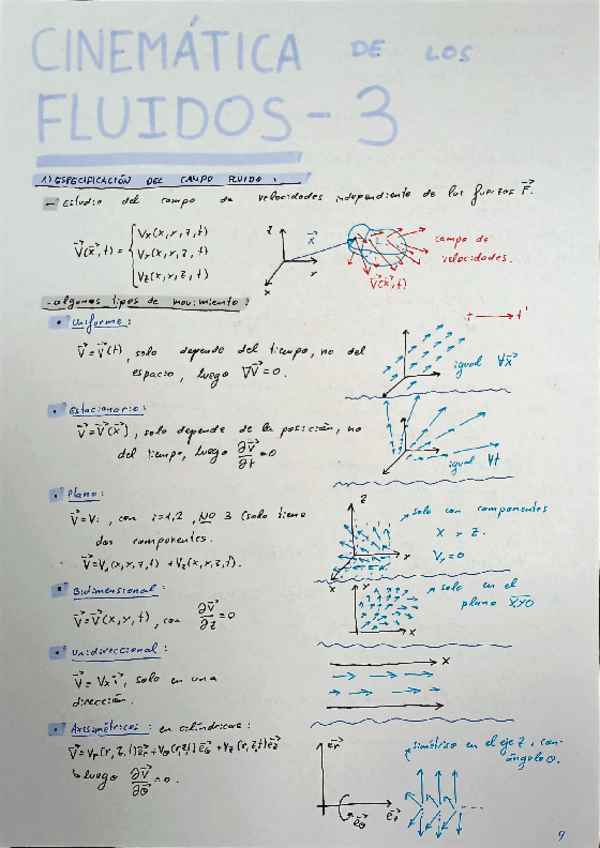 CINEMÁTICA DE LOS
FLUIDOS - 3
1) ESPECIFICACIÓN DEL CAMPO FLUIDO:
- Estudio del campo de velocidades independiente de las fuerzas F⃗.
V⃗(x⃗,t) = { Vx(x,y,z,t)
Vy(x,y,z,t)
Vz(x,y,z,t)
z
x⃗
y
x
V⃗(x⃗,t)
campo de
velocidades.
- algunos tipos de movimiento:
t → t'
• Uniforme:
V⃗=V⃗(t), solo depende del tiempo, no del
espacio, luego ∇V⃗=0.
igual ∀x⃗
• Estacionario:
V⃗=V⃗(x⃗), solo depende de la posición, no
del tiempo, luego ∂V⃗/∂t=0
igual ∀t
• Plano:
V⃗=Vi, con i=1,2, NO 3 (solo tiene
dos componentes.
V⃗=Vx(x,y,z,t)+Vz(x,y,z,t).
z
y
x
solo con componentes
X y Z.
Vy=0
• Bidimensional:
V⃗=V⃗(x,y,t), con ∂V⃗/∂z=0
y
x
solo en el
plano XYO
• Unidireccional:
V⃗=Vx i⃗, solo en una
dirección.
x
• Axisimétricos: en cilíndricas:
V⃗=Vr(r,z,t)e⃗r+Vθ(r,z,t)e⃗θ+Vz(r,z,t)e⃗z
↳ luego ∂V⃗/∂θ=0.
e⃗r
e⃗θ
e⃗z
simétrico en el eje z, con
ángulo θ.
9